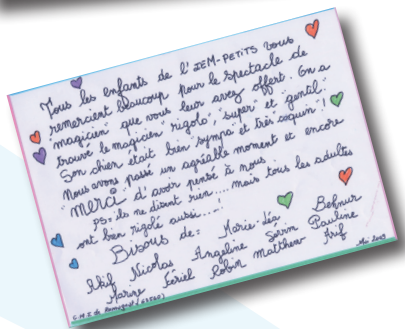 Tous les enfants de l'IEM-PETITS vous
remercient beaucoup pour le spectacle de
"magicien" que vous leur avez offert. On a
trouvé le magicien "rigolo", "super" et "gentil".
Son chien était bien sympa et très coquin !
Nous avons passé un agréable moment et encore
"merci" d'avoir pensé à nous.
PS: ils ne disent rien.... mais tous les adultes
ont bien rigolé aussi....!
Bisous de: Marie-Léa Behnur
Akif Nicolas Angeline Serm Pauline
Marine Fériel Robin Matthew Arif
C.M.I de Romagnat (63540) Mai 2009